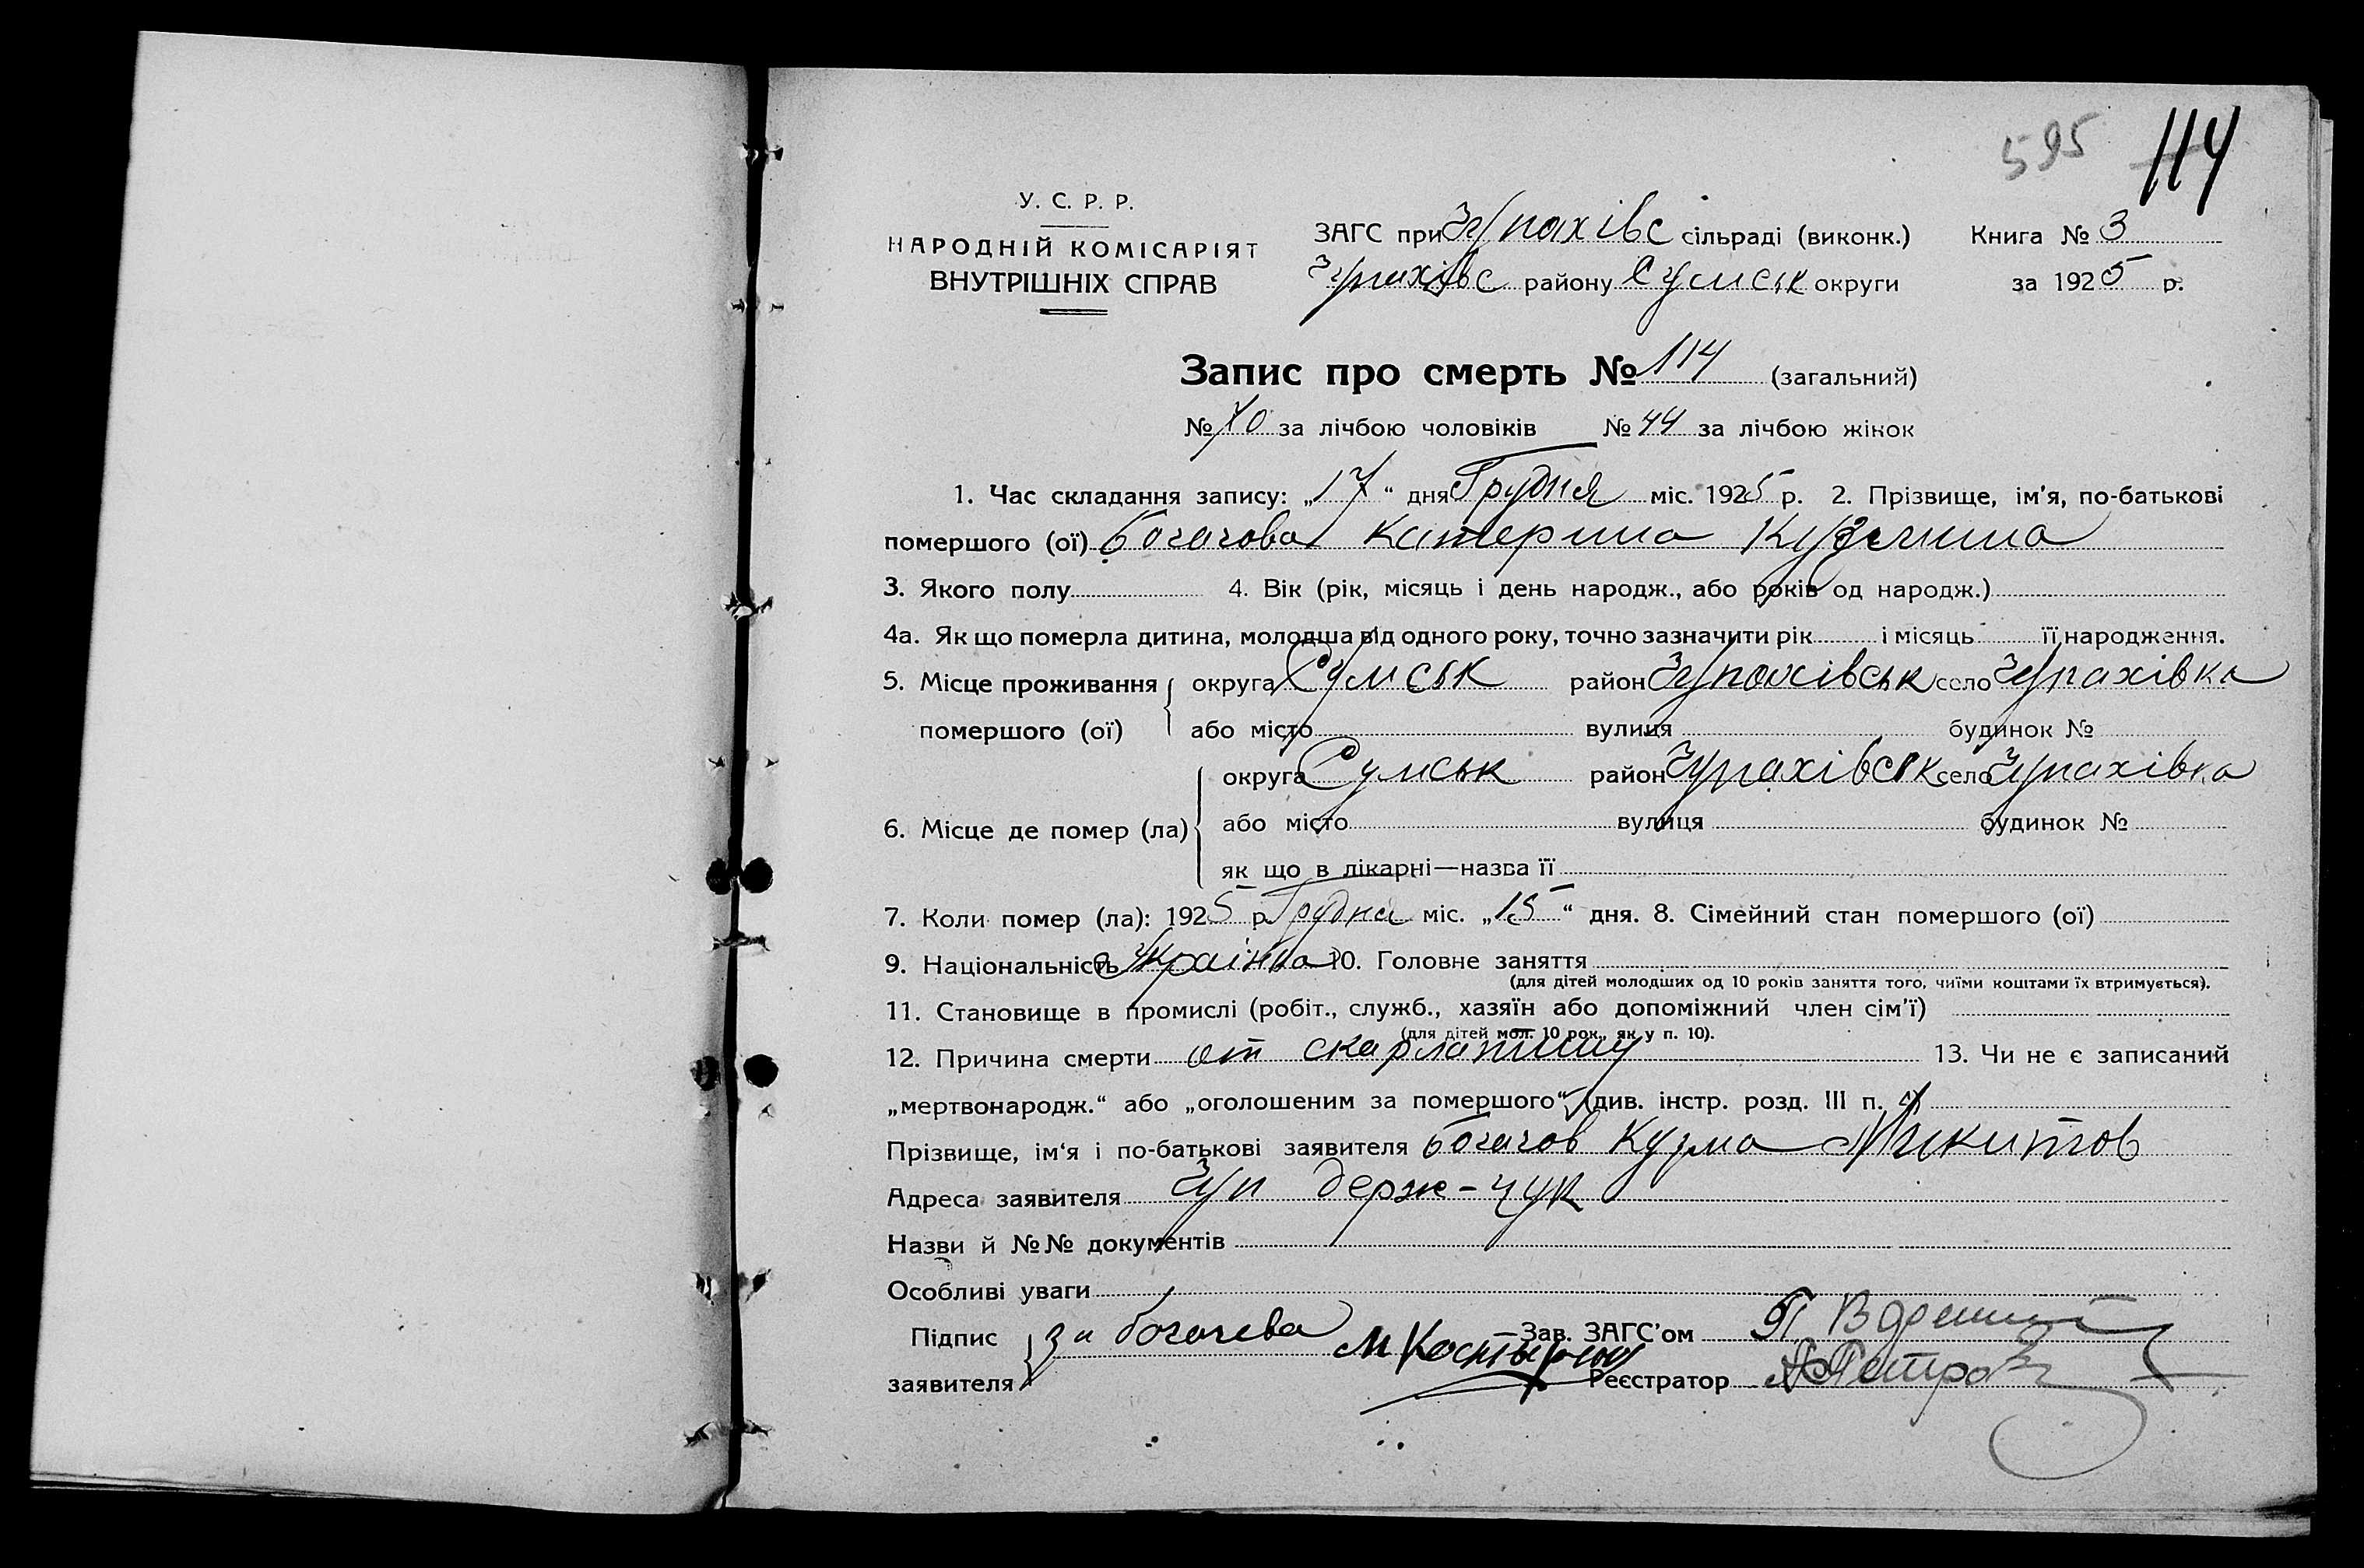 595 114
У. С. Р. Р.
НАРОДНІЙ КОМІСАРІЯТ
ВНУТРІШНІХ СПРАВ
ЗАГС при Чупахівс сільраді (виконк.) Книга № 3
Чупахівс району Сумськ округи за 1925 р.
Запис про смерть № 114 (загальний)
№ 70 за лічбою чоловіків № 44 за лічбою жінок
1. Час складання запису: „17“ дня Грудня міс. 1925 р. 2. Прізвище, ім'я, по-батькові
помершого (ої) Богачова Катерина Кузмина
3. Якого полу 4. Вік (рік, місяць і день народж., або років од народж.)
4а. Як що померла дитина, молодша від одного року, точно зазначити рік і місяць її народження.
5. Місце проживання округа Сумськ район Чупахівськ село Чупахівка
помершого (ої) або місто вулиця будинок №
округа Сумськ район Чупахівськ село Чупахівка
6. Місце де помер (ла) або місто вулиця будинок №
як що в лікарні—назва її
7. Коли помер (ла): 1925 р. Грудня міс. „15“ дня. 8. Сімейний стан помершого (ої)
9. Національність Українка 10. Головне заняття
(для дітей молодших од 10 років заняття того, чиїми коштами їх втримується).
11. Становище в промислі (робіт., служб., хазяїн або допоміжний член сім'ї)
(для дітей мол. 10 рок., як у п. 10).
12. Причина смерти от скарлатины 13. Чи не є записаний
„мертвонародж.“ або „оголошеним за помершого“ (див. інстр. розд. III п. 4)
Прізвище, ім'я і по-батькові заявителя Богачов Кузма Микитов
Адреса заявителя Чуп держ-цук
Назви й №№ документів
Особливі уваги
Підпис за Богачева М Костырин Зав. ЗАГС'ом
заявителя Реєстратор Петров